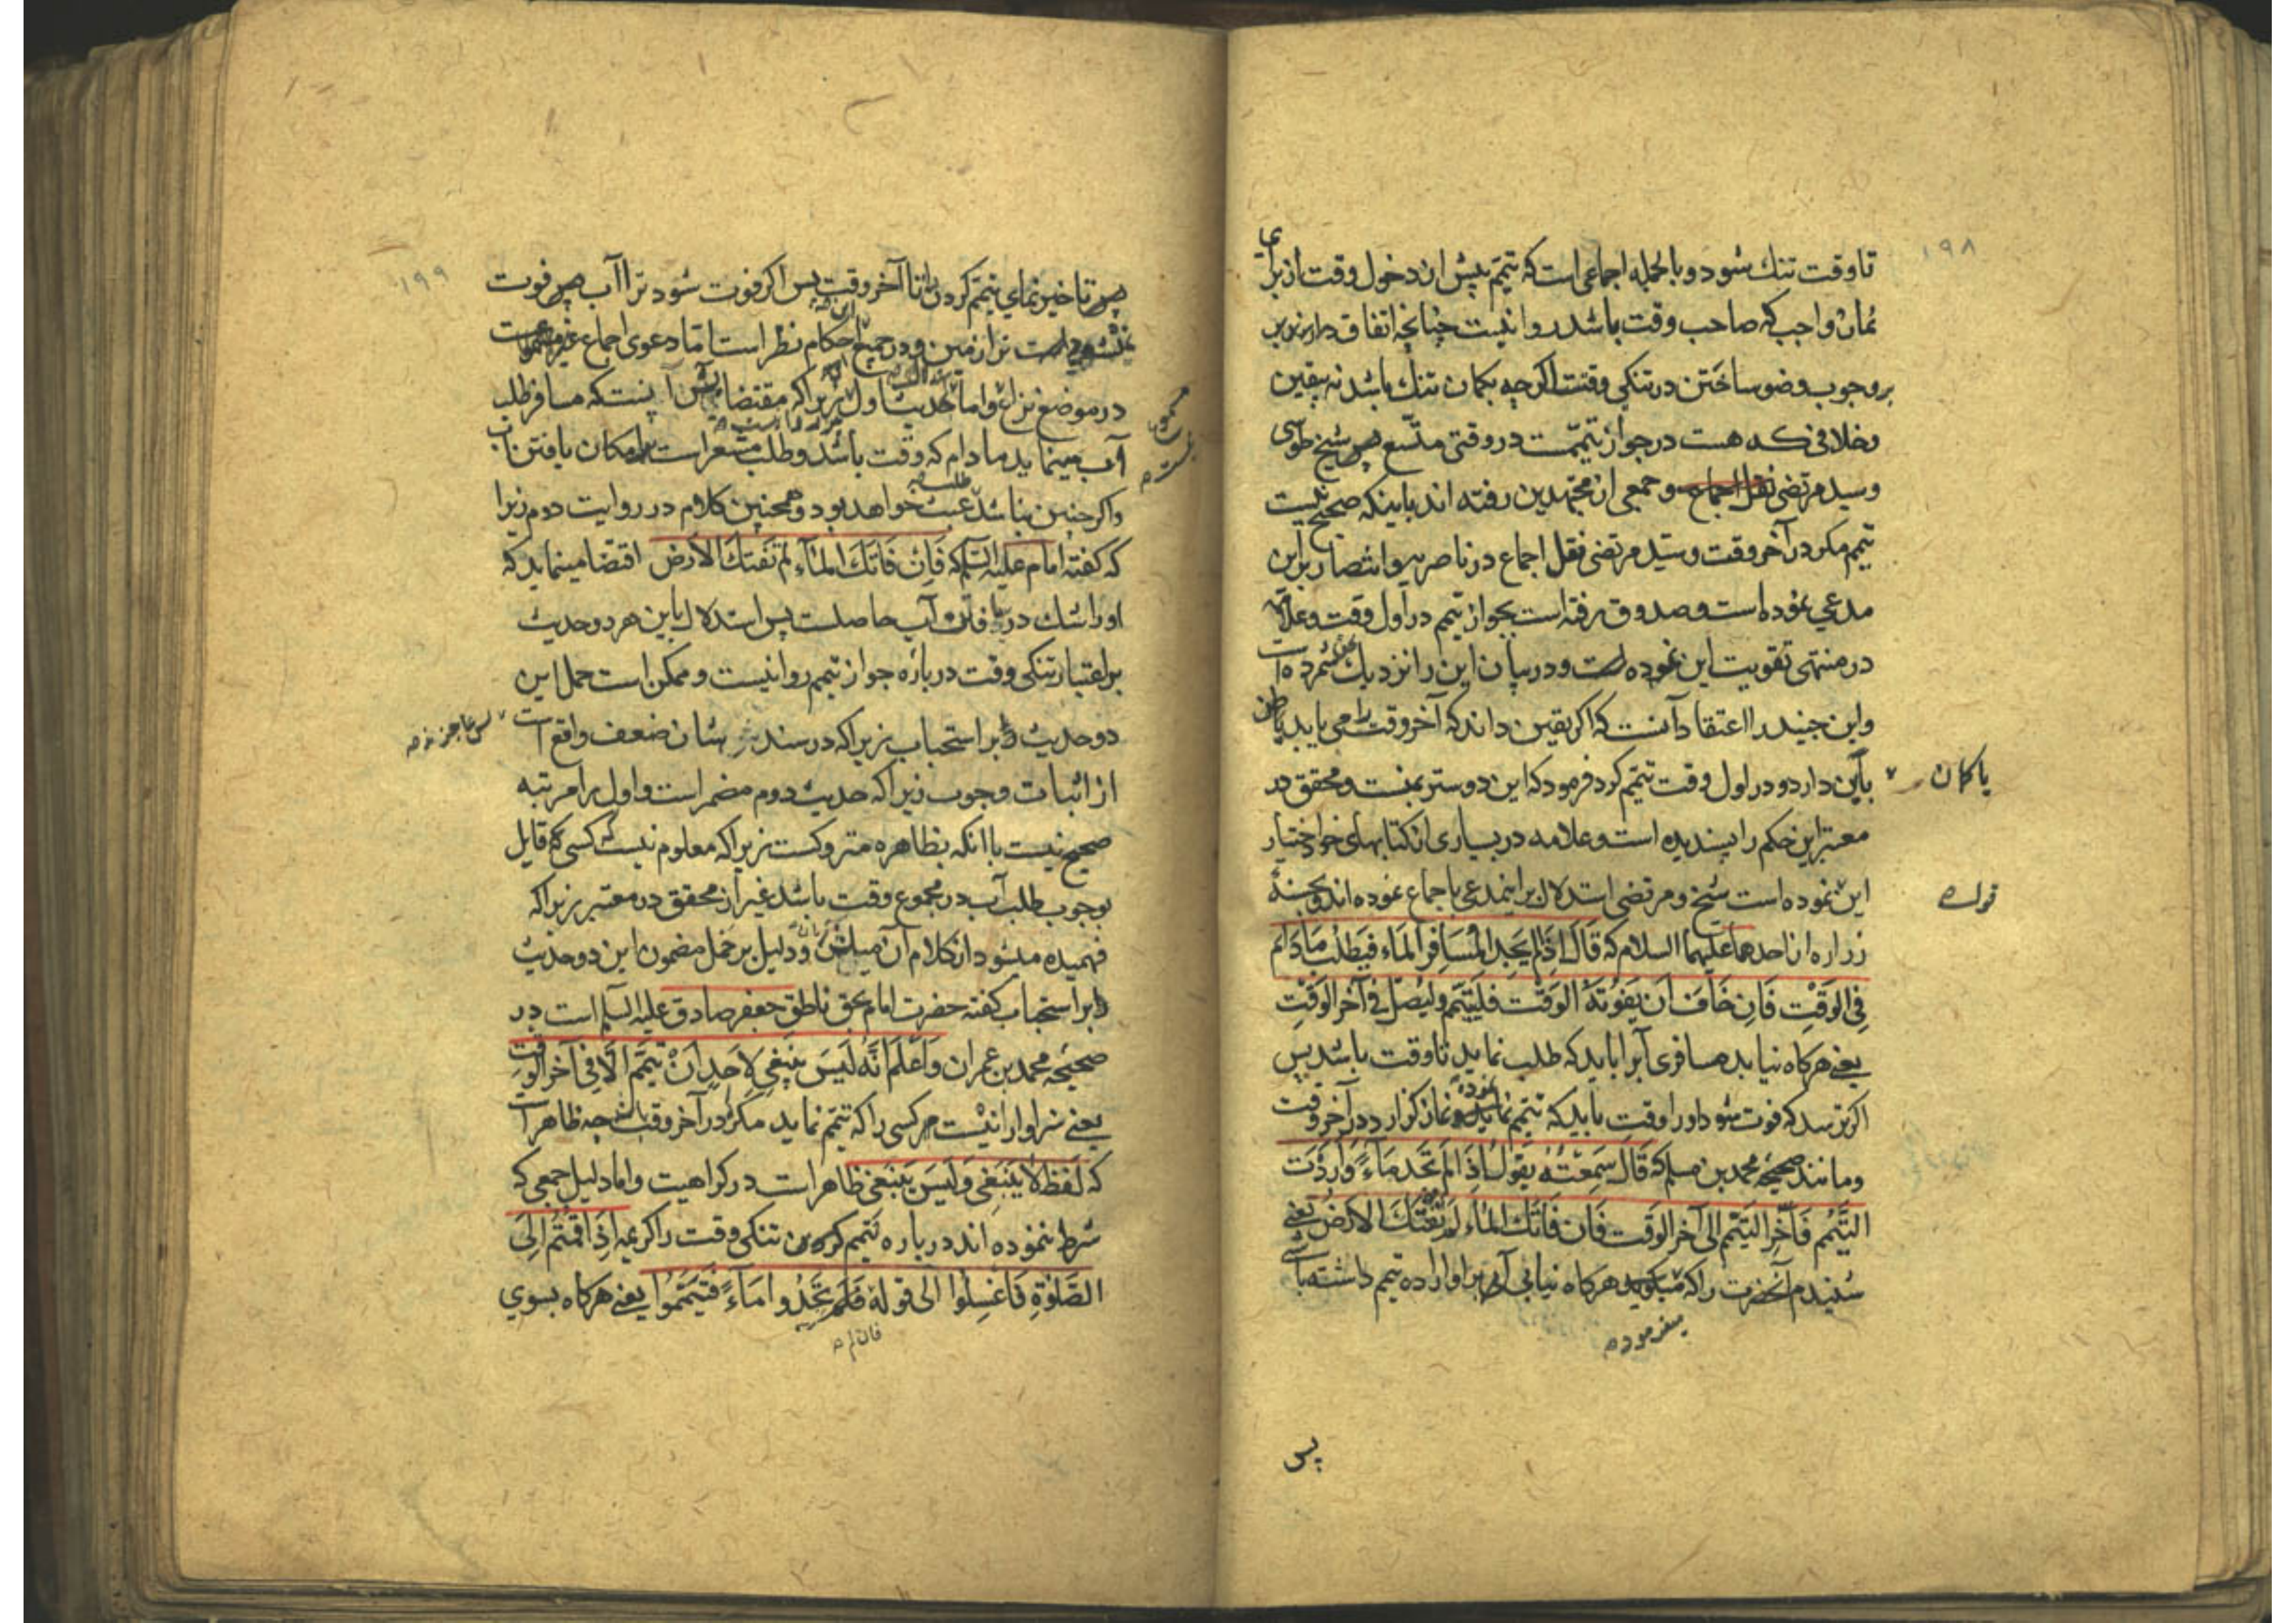 ۱۹۸
تا وقت تنك شود و بالجمله اجماعی است که تیمم پیش از دخول وقت از برای
نماز واجب که صاحب وقت باشد روا نیست چنانچه اتفاق دارند بر
بر وجوب وضو ساختن در تنکی وقت اکرچه بکمان تنك باشد نه یقین
و خلافی که هست در جواز تیممست در وقتی متسع پس شیخ طوسی
و سید مرتضی نقل اجماع و جمعی از مجتهدین رفته اند باینکه صحیح نیست
تیمم مکر در آخر وقت و سید مرتضی نقل اجماع در ناصریه و انتصار بر این
مدعی نموده است و صدوق رفته است بجواز تیمم در اول وقت و علامه
در منتهی تقویت این نموده است و در بیان این را نزدیك شمرده است
و ابن جنید را اعتقاد آنست که اکر یقین داند که آخر وقت را می یابد یا ظن
باین دارد و در اول وقت تیمم کرد فرمود که این دوستر بمنست و محقق در
یا کمان
معتبر این حکم را پسندیده است و علامه در بسیاری از کتابهای خود اختیار
این نموده است شیخ و مرتضی استدلال بر اینمدعی باجماع نموده اند و بحسنهٔ
زراره از احدهما علیهما السلام که قَالَ اِذَا لَم یَجِدِ الْمُسَافِرُ الْمَاءَ فَیَطْلُبُ مَا دَامَ
فِی الْوَقْتِ فَاِن خَافَ اَن یَفُوتَهُ الْوَقْتُ فَلْیَتَیَمَّم وَلْیُصَلِّ فِی آخِرِ الْوَقْتِ
یعنی هرکاه نیابد مسافری آبرا باید که طلب نماید تا وقت باشد پس
اکر بترسد که فوت شود او را وقت باید که تیمم نماید و نماز کزارد در آخر وقت
و مانند صحیحه محمد بن مسلم که قَالَ سَمِعْتُهُ یَقُولُ اِذَا لَمْ تَجِد مَاءً وَاَرَدْتَ
التَّیَمُّمَ فَاَخِّرِ التَّیَمُّمَ اِلی آخِرِ الْوَقْتِ فَاِن فَاتَكَ الْمَاءُ لَمْ تَفُتْكَ الْاَرْضُ یعنی
شنیدم آنحضرت را که میکوید هرکاه نیابی آبی را و اراده تیمم داشته باشی
میفرموده
پس
۱۹۹
پس تاخیر نمای تیمم کردن را تا آخر وقت پس اکر فوت شود ترا آب پس فوت
در موضع نزاع و اما حدیث اول زیرا که مقتضایش آنست که مسافر طلب
آب مینماید مادام که وقت باشد و طلب مشعر است بامکان یافتن آب
و اکر چنین نباشد عبث خواهد بود و همچنین کلام در روایت دوم زیرا
که کفته امام علیه السلم که فَاِنْ فَاتَكَ الْمَآءُ لَمْ تَفُتْكَ الْاَرْض اقتضا مینماید که
او را شك در یافتن آب حاصلست پس استدلال باین هر دو حدیث
بر اعتبار تنکی وقت درباره جواز تیمم روا نیست و ممکن است حمل این
دو حدیث بر استحباب زیرا که در سندشان ضعف واقع است
از اثبات وجوب زیرا که حدیث دوم مضمر است و اول را مرتبه
صحیح نیست با آنکه بظاهره متروکست زیرا که معلوم نیست که کسی که قایل
بوجوب طلب آب در مجموع وقت باشد غیر از محقق در معتبر زیرا که
فهمیده میشود از کلام آن میلش و دلیل بر حمل مضمون این دو حدیث
بر استحباب کفته حضرت امام بحق ناطق جعفر صادق علیه السلم است در
صحیحه محمد بن عمران وَاعْلَم اَنَّهُ لَیْسَ یَنْبَغِی لِاَحَدٍ اَنْ یَتَیَمَّمَ اِلَّا فِی آخِرِ الْوَقْتِ
یعنی سزاوار نیست مر کسی را که تیمم نماید مکر در آخر وقت چه ظاهر است
که لفظ لَا یَنْبَغِی وَلَیْسَ یَنْبَغِی ظاهر است در کراهیت و اما دلیل جمعی که
شرط ننموده اند درباره تیمم کردن تنکی وقت را کریمه اِذَا قُمْتُمْ اِلَی
الصَّلٰوةِ فَاغْسِلُوا الی قوله فَلَمْ تَجِدُوا مَآءً فَتَیَمَّمُوا یعنی هرکاه بسوی
فان لم